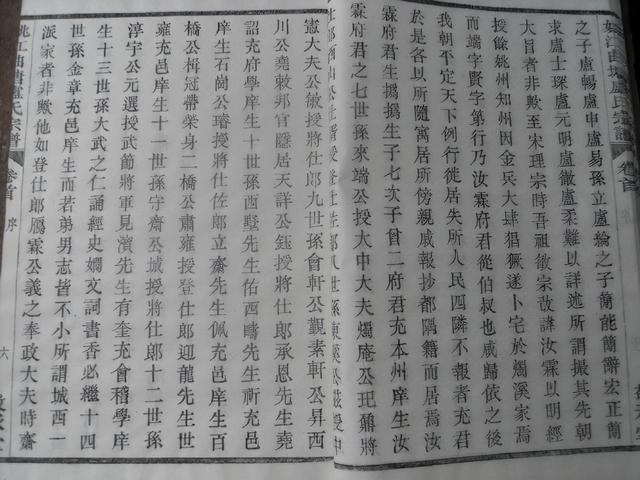 之子盧暢盧申盧易孫立盧綸之子簡能簡辭宏正簡
求盧士琛盧元明盧徽盧柔難以詳述所謂撮其先朝
大者非歟至宋理宗時吾祖敏宗改諱汝霖以明經
授餘姚州知州因金兵大肆猖獗遂卜宅於燭溪家焉
而端字賢字第行乃汝霖府君從伯叔也咸歸依之後
我朝平定天下例行徙居失所人民四隣不報者充君
於是各以所隨寓居所傍親戚報抄都隅籍而居焉汝
霖府君生撝撝生子七次子曾二府君充本州庠生汝
霖府君之七世孫來端公授大中大夫燭庵公玘鼐將
憲大夫公敏授將仕郎九世孫會軒公觀素軒公昇西
川公堯敕邦官隱居天詳公鈺授將仕郎承恩先生堯
詔充府學庠生十世孫西墅先生佑西疇先生祈充邑
庠生石崗公璿授將仕佐郎立齋先生佩充庠生百
橋公楫冠帶榮身二橋公肅雍授登仕郎迎龍先生世
雍充邑庠生十一世孫守齋公城授將仕郎十二世孫
淳宇公元選授武節將軍見濱先生有奎充會稽學庠
生十三世孫大武之仁誦經史嫻文詞書香必繼十四
世孫金章充邑庠生而若弟男志皆不小所謂城西一
派家者非歟他如登仕郎鳳霖公義之奉政大夫時齋
姚江曲塘盧氏宗譜 卷首 序 六